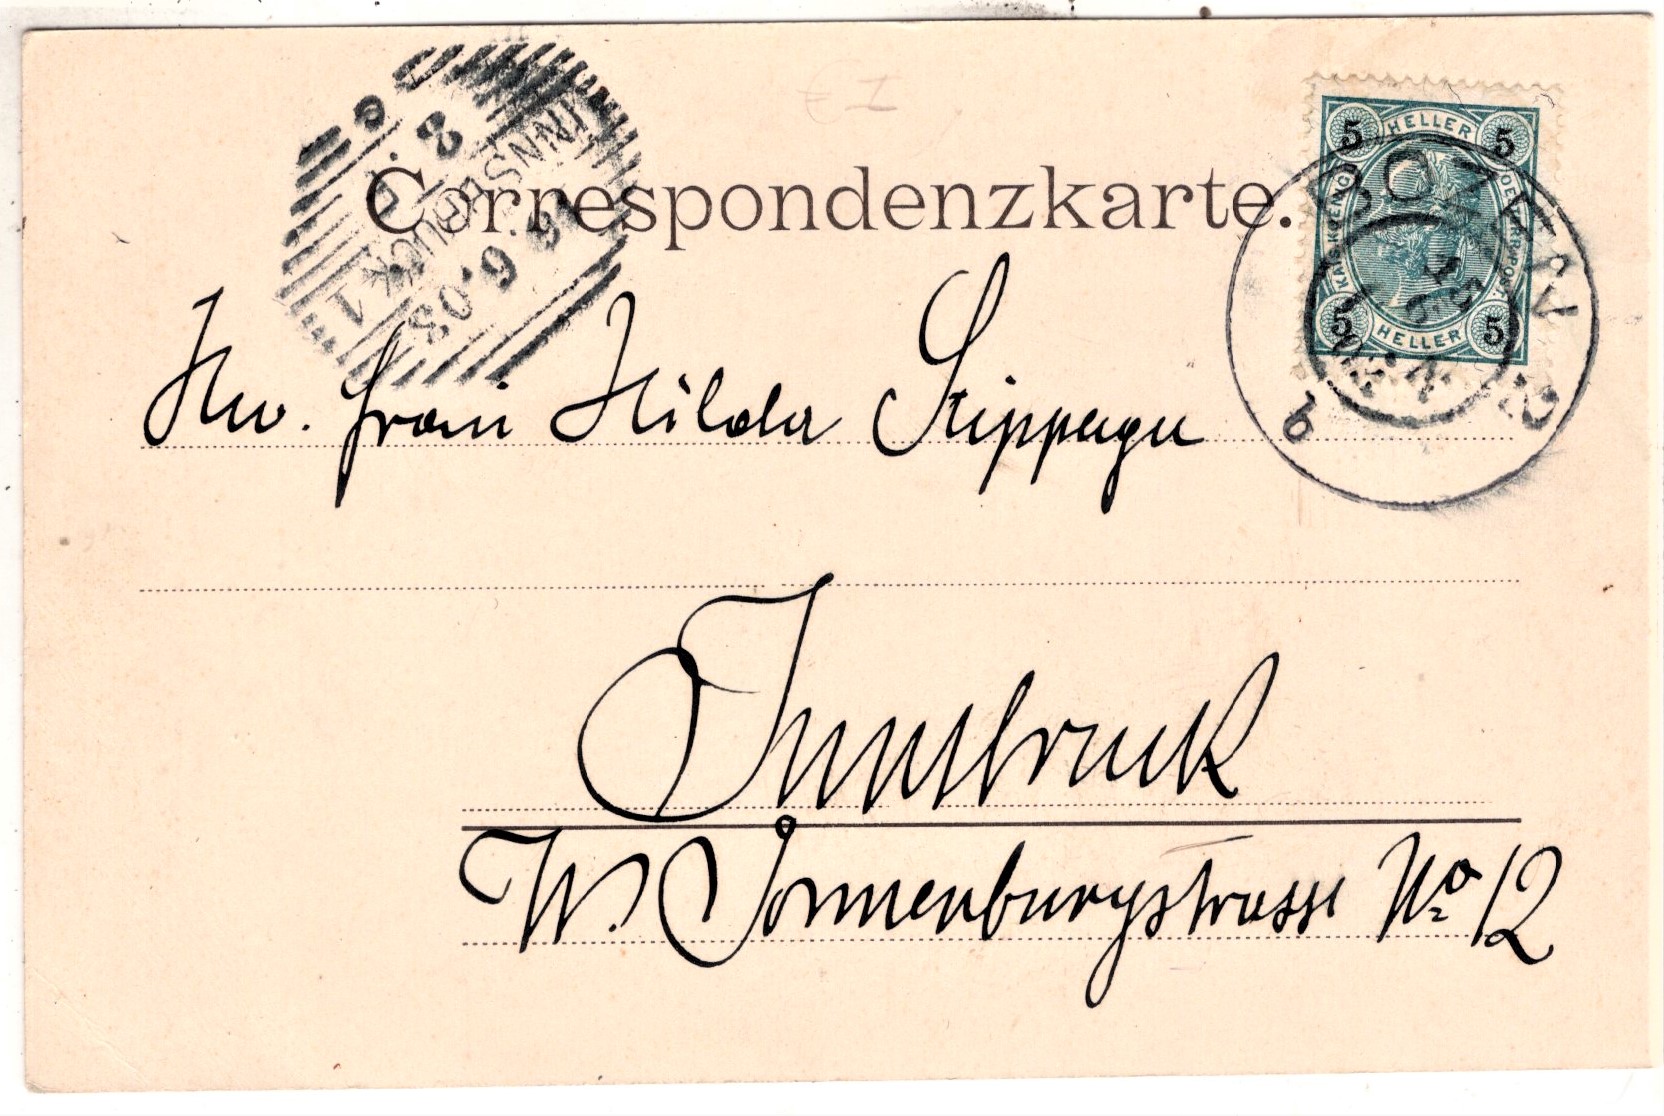 € 1
Correspondenzkarte.
INNSBRUCK 1
2
6.03
5 HELLER 5
KAIS. KOENIGL. OESTERR. POST
5 HELLER 5
BOZEN 2
15
6
b
frau Hilda
Innsbruck
W. Sonnenburgstrasse No 12